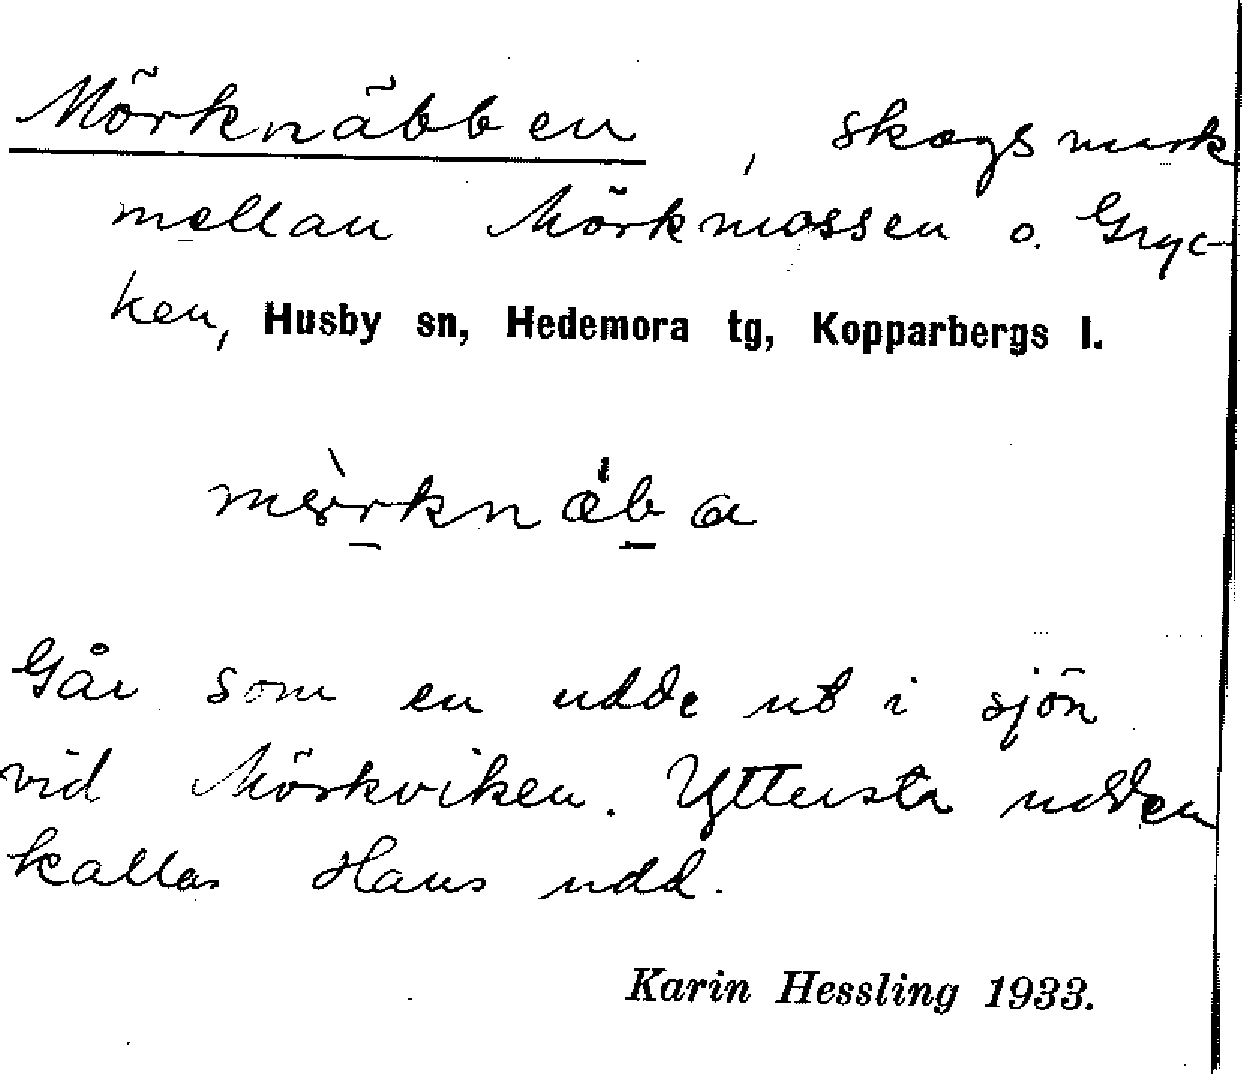 Mörknäbben, skogsmark
mellan Mörkmossen o. Gryc-
ken, Husby sn, Hedemora tg, Kopparbergs l.
Går som en udde ut i sjön
vid Mörkviken. Yttersta udden
kallas Hans udd.
Karin Hessling 1933.